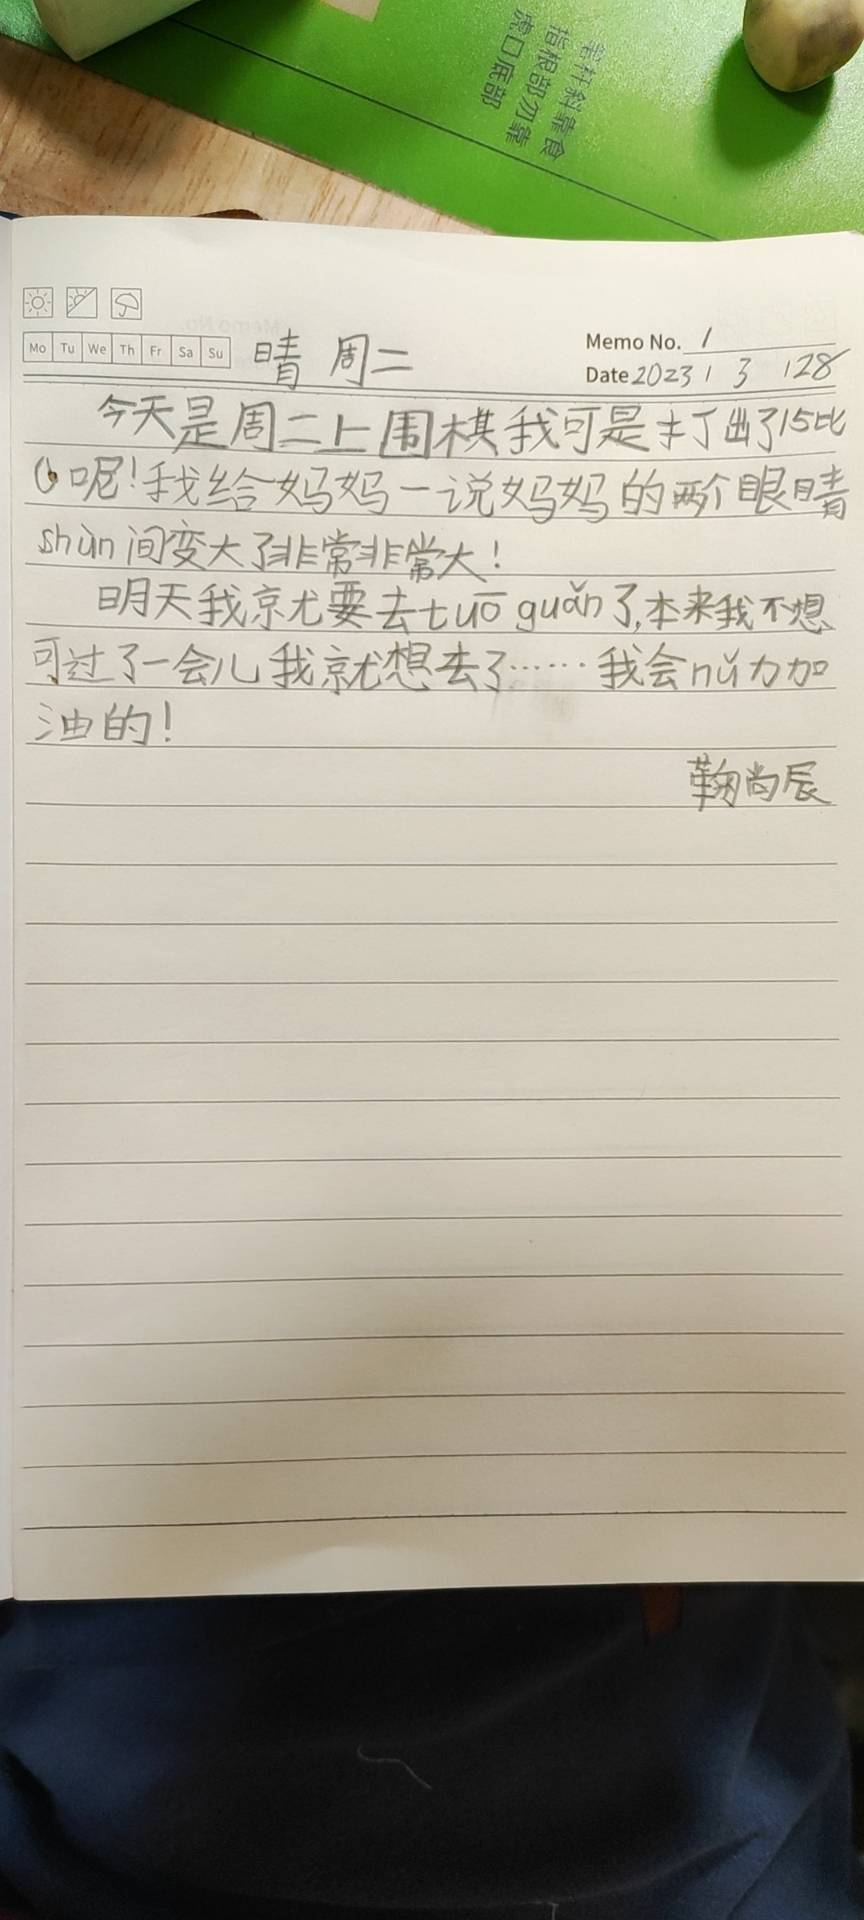 笔杆斜靠食
指根部勿靠
虎口底部
Mo Tu We Th Fr Sa Su
晴 周二
Memo No. 1
Date 2023 1 3 128
今天是周二上围棋我可是打出了15比
0呢!我给妈妈一说妈妈的两个眼睛
shùn间变大了非常非常大!
明天我就要去tuō guǎn了,本来我不想
可过了一会儿我就想去了……我会nǔ力加
油的!
鞠尚辰